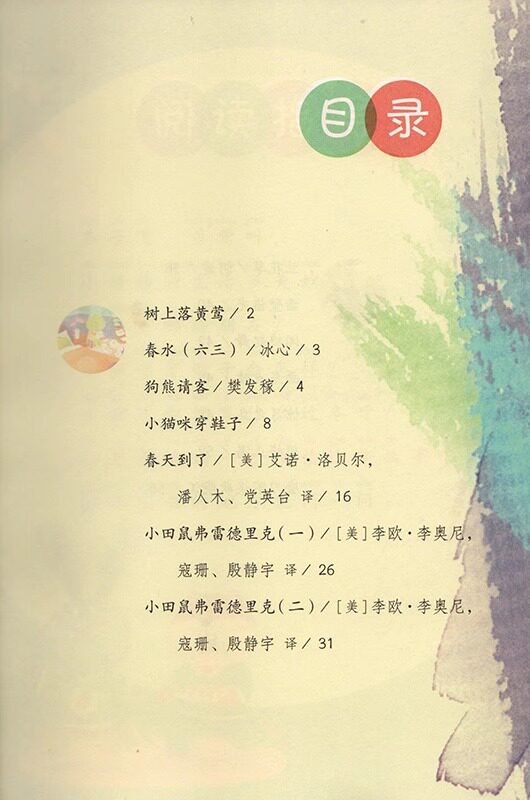 目录
树上落黄莺/2
春水(六三)/冰心/3
狗熊请客/樊发稼/4
小猫咪穿鞋子/8
春天到了/[美]艾诺·洛贝尔,
潘人木、党英台 译/16
小田鼠弗雷德里克(一)/[美]李欧·李奥尼,
寇珊、殷静宇 译/26
小田鼠弗雷德里克(二)/[美]李欧·李奥尼,
寇珊、殷静宇 译/31